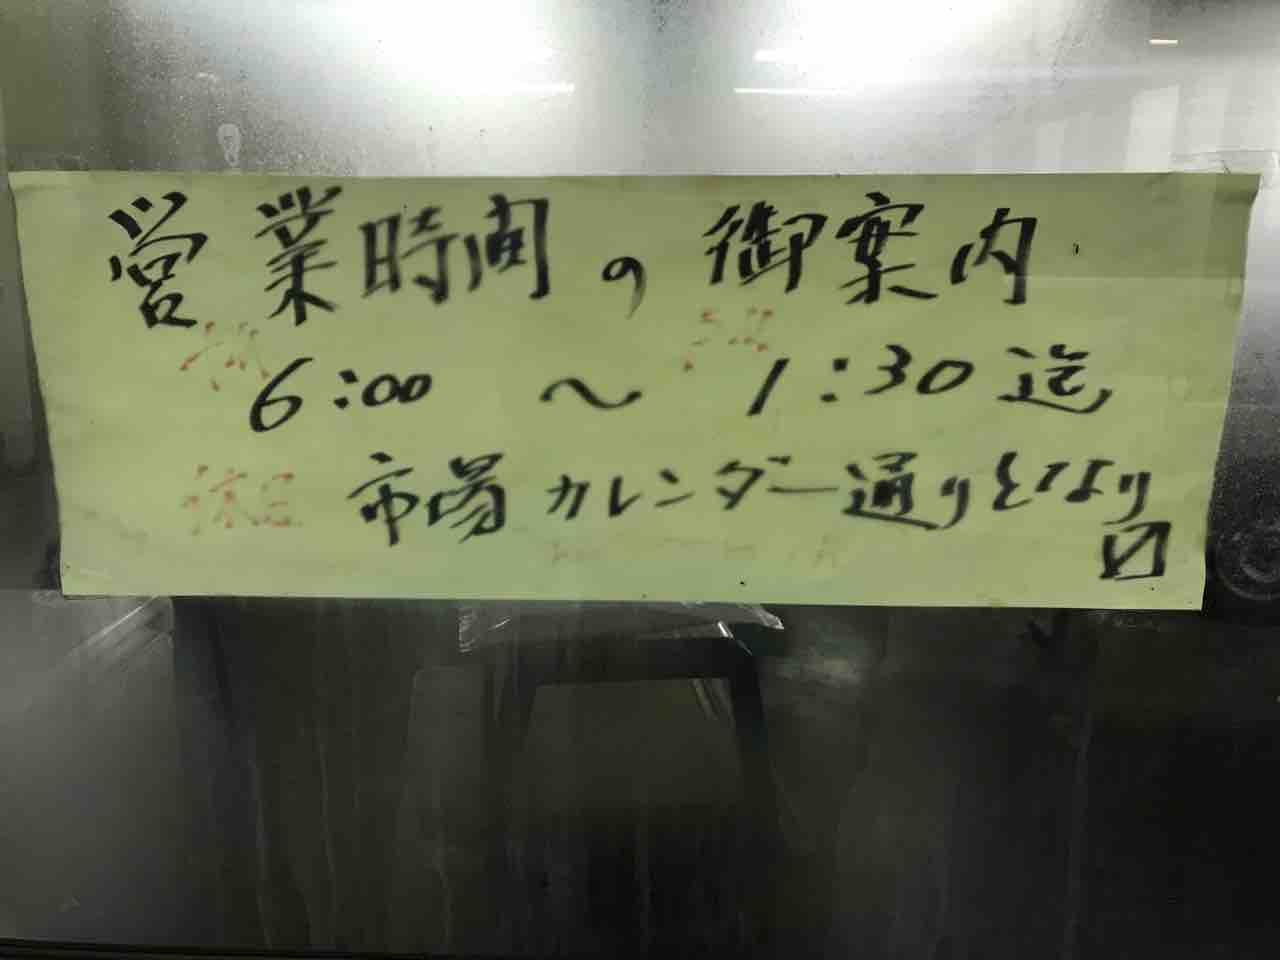 営業時間の御案内
6:00 ～ 1:30 迄
休日 市場カレンダー通りとなり
〼